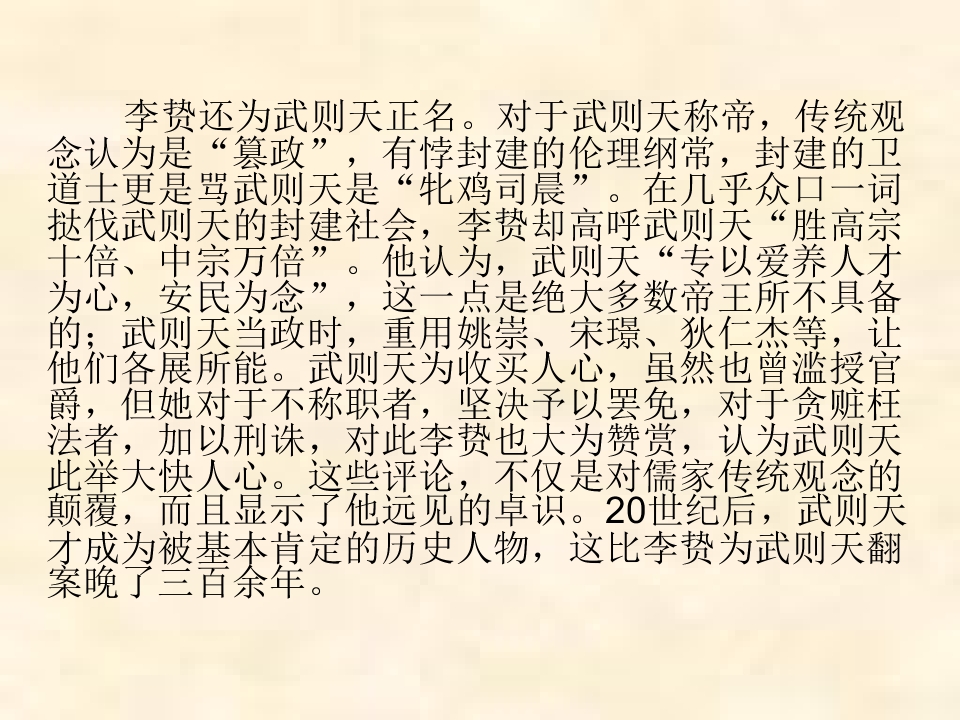 李贽还为武则天正名。对于武则天称帝，传统观
念认为是“篡政”，有悖封建的伦理纲常，封建的卫
道士更是骂武则天是“牝鸡司晨”。在几乎众口一词
挞伐武则天的封建社会，李贽却高呼武则天“胜高宗
十倍、中宗万倍”。他认为，武则天“专以爱养人才
为心，安民为念”，这一点是绝大多数帝王所不具备
的；武则天当政时，重用姚崇、宋璟、狄仁杰等，让
他们各展所能。武则天为收买人心，虽然也曾滥授官
爵，但她对于不称职者，坚决予以罢免，对于贪赃枉
法者，加以刑诛，对此李贽也大为赞赏，认为武则天
此举大快人心。这些评论，不仅是对儒家传统观念的
颠覆，而且显示了他远见的卓识。20世纪后，武则天
才成为被基本肯定的历史人物，这比李贽为武则天翻
案晚了三百余年。